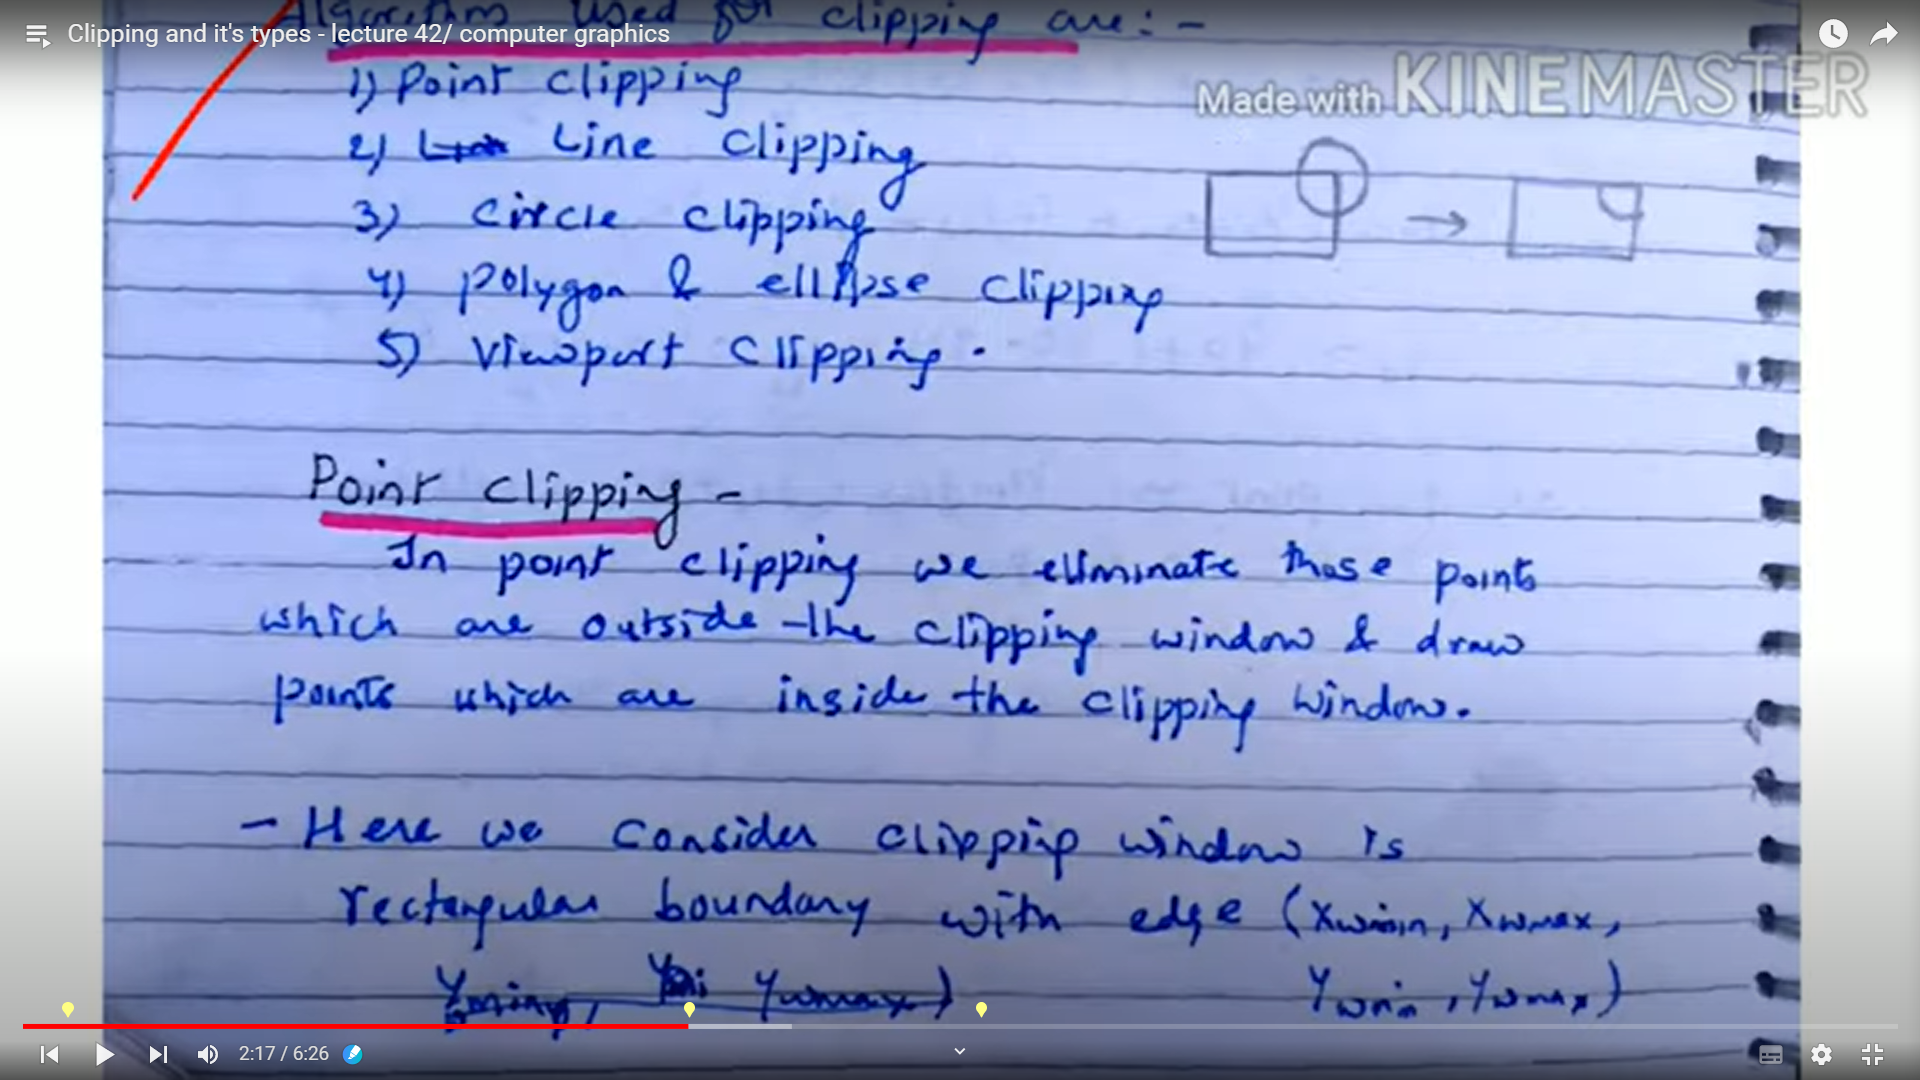 Algorithm used for clipping are:-
Clipping and it's types - lecture 42/ computer graphics
Made with KINEMASTER
1) Point clipping
2) Line clipping
3) Circle clipping
4) polygon & ellipse clipping
5) Viewport clipping.
Point clipping -
In point clipping we eliminate those points
which are outside the clipping window & draw
points which are inside the clipping window.
- Here we consider clipping window is
rectangular boundary with edge (xwmin, xwmax,
Ywmin, Ywmax)
2:17 / 6:26